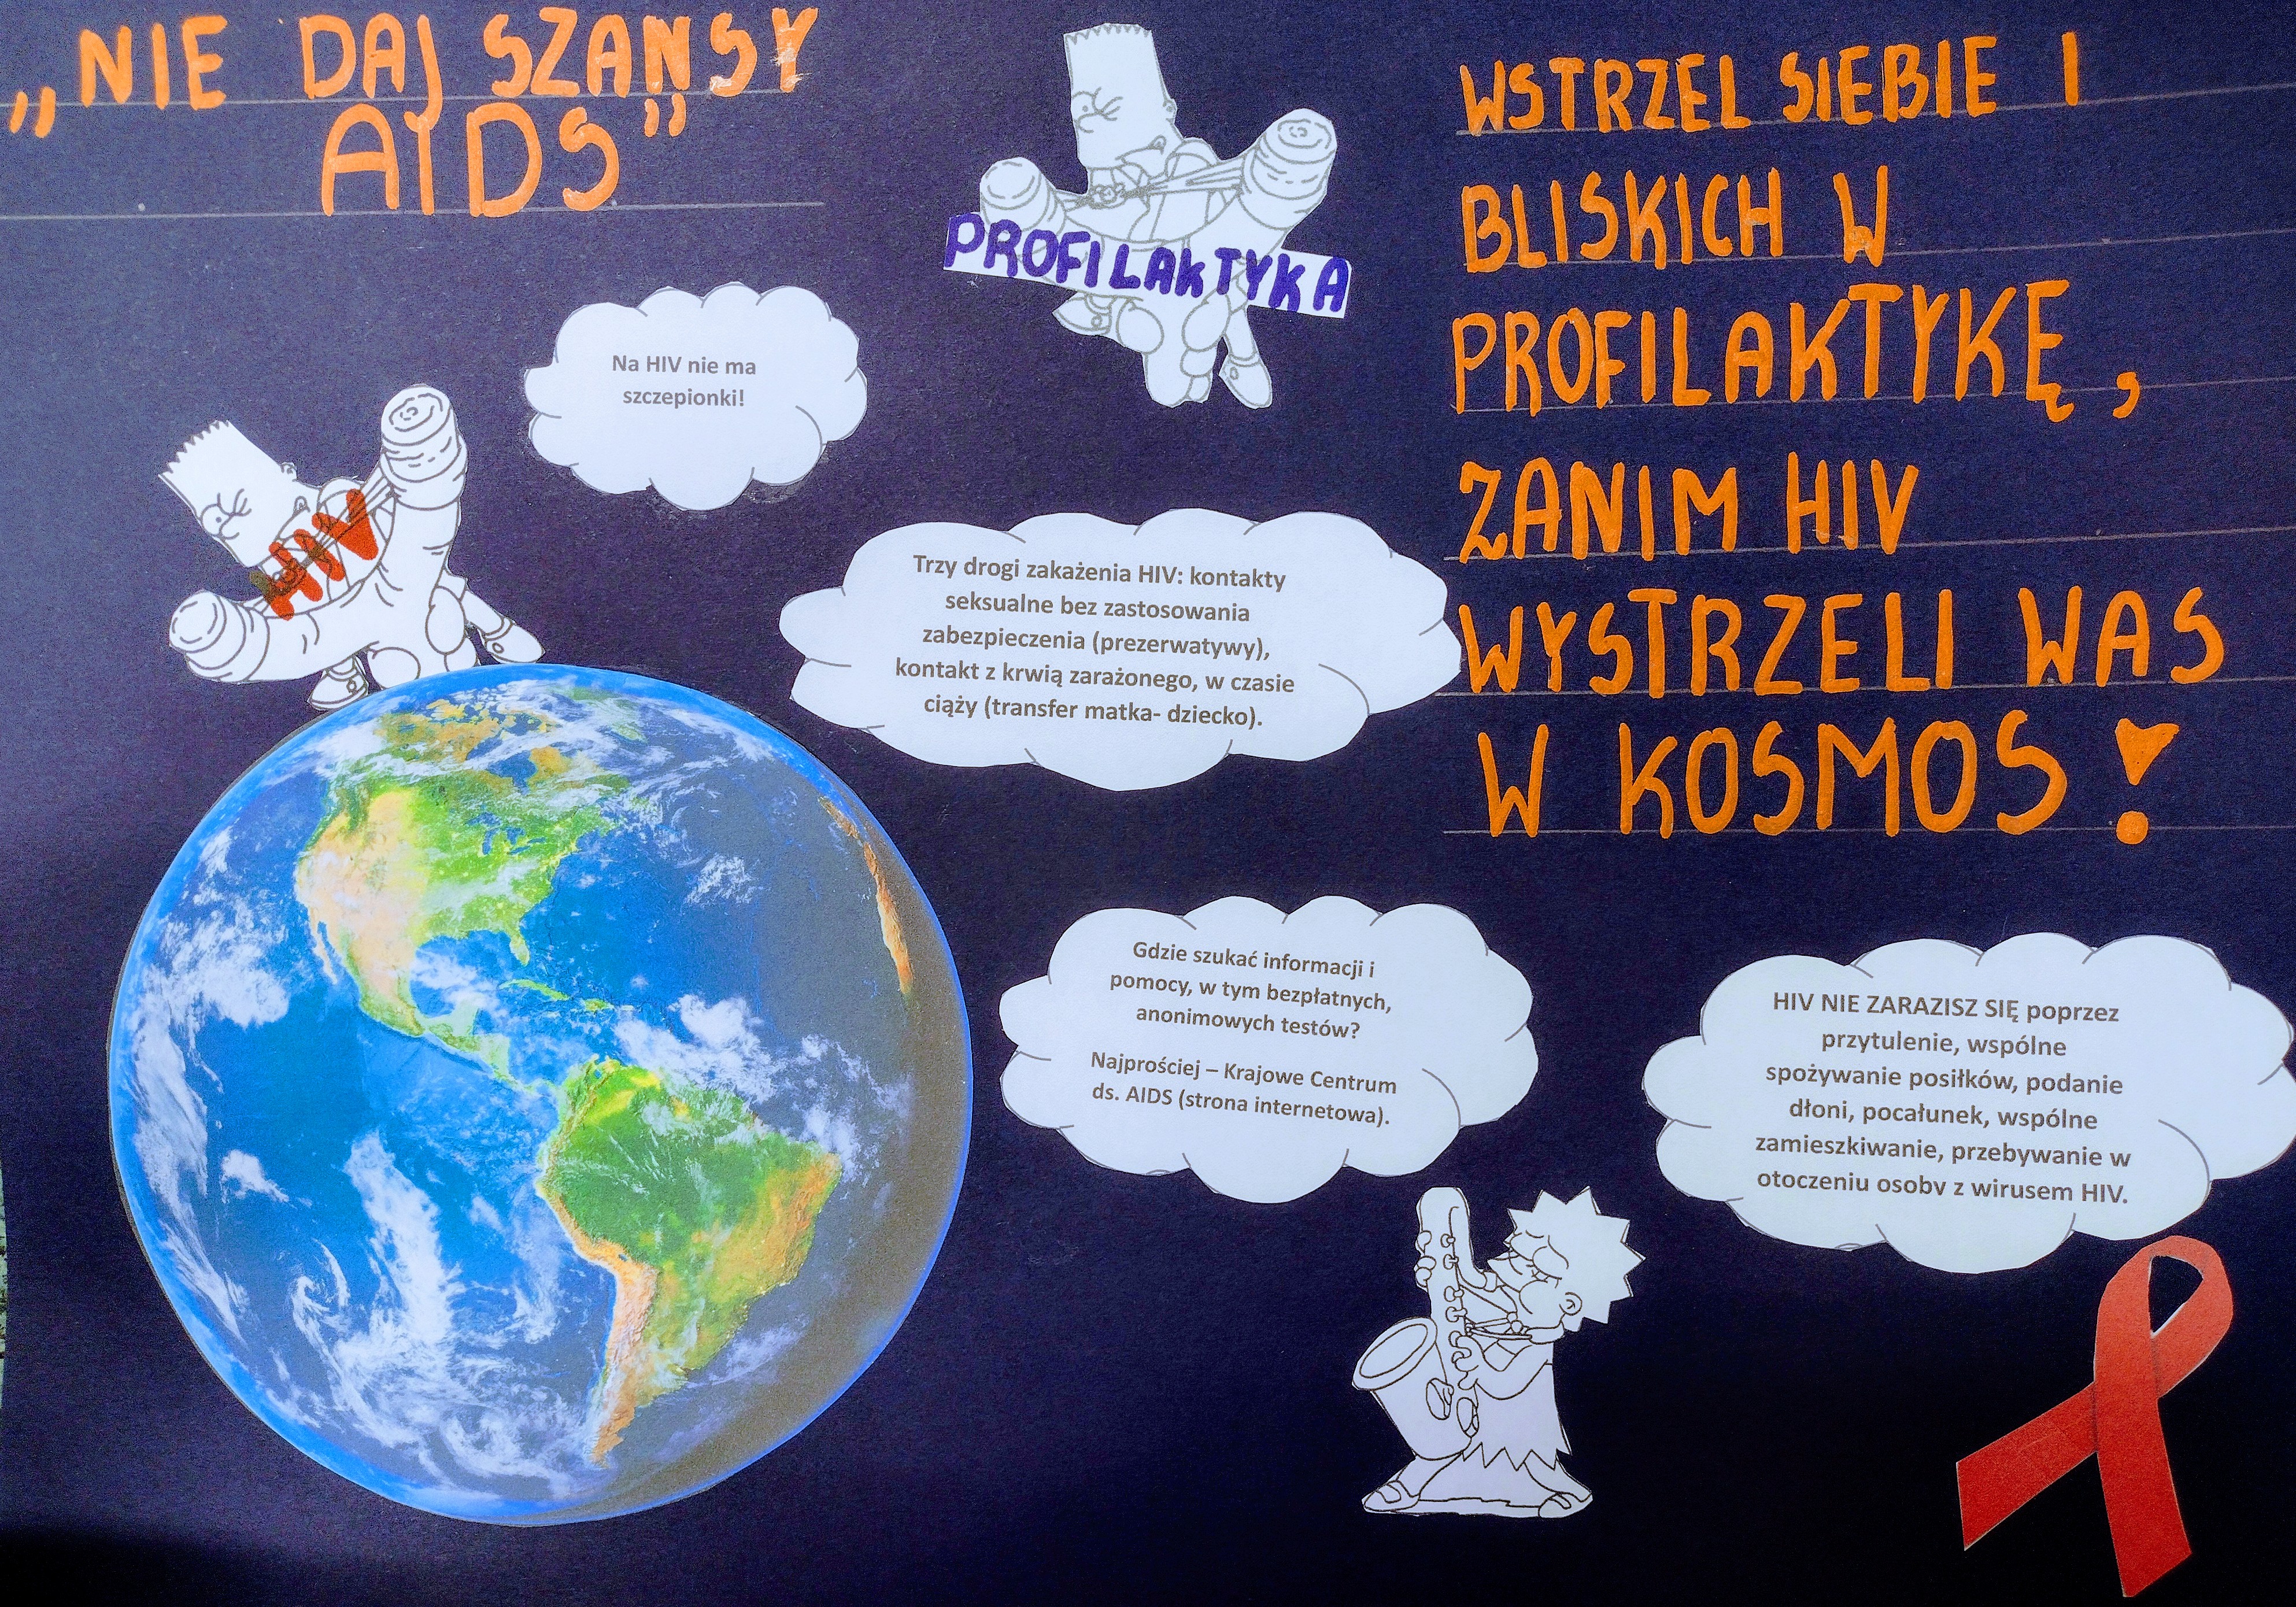 „NIE DAJ SZANSY
AIDS”
PROFILAKTYKA
WSTRZEL SIEBIE I
BLISKICH W
PROFILAKTYKĘ,
ZANIM HIV
WYSTRZELI WAS
W KOSMOS!
Na HIV nie ma
szczepionki!
HIV
Trzy drogi zakażenia HIV: kontakty
seksualne bez zastosowania
zabezpieczenia (prezerwatywy),
kontakt z krwią zarażonego, w czasie
ciąży (transfer matka- dziecko).
Gdzie szukać informacji i
pomocy, w tym bezpłatnych,
anonimowych testów?
Najprościej – Krajowe Centrum
ds. AIDS (strona internetowa).
HIV NIE ZARAZISZ SIĘ poprzez
przytulenie, wspólne
spożywanie posiłków, podanie
dłoni, pocałunek, wspólne
zamieszkiwanie, przebywanie w
otoczeniu osoby z wirusem HIV.